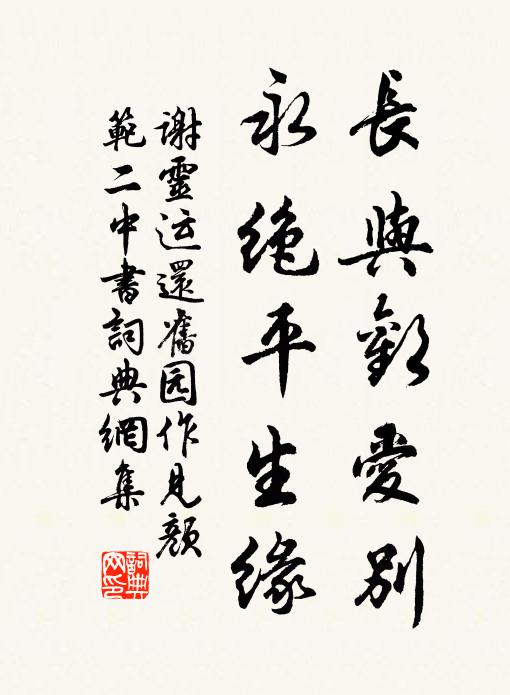 長與歡愛別
永絶平生緣
謝靈运還舊园作見顔
範二中書詞典網集
詞典网印